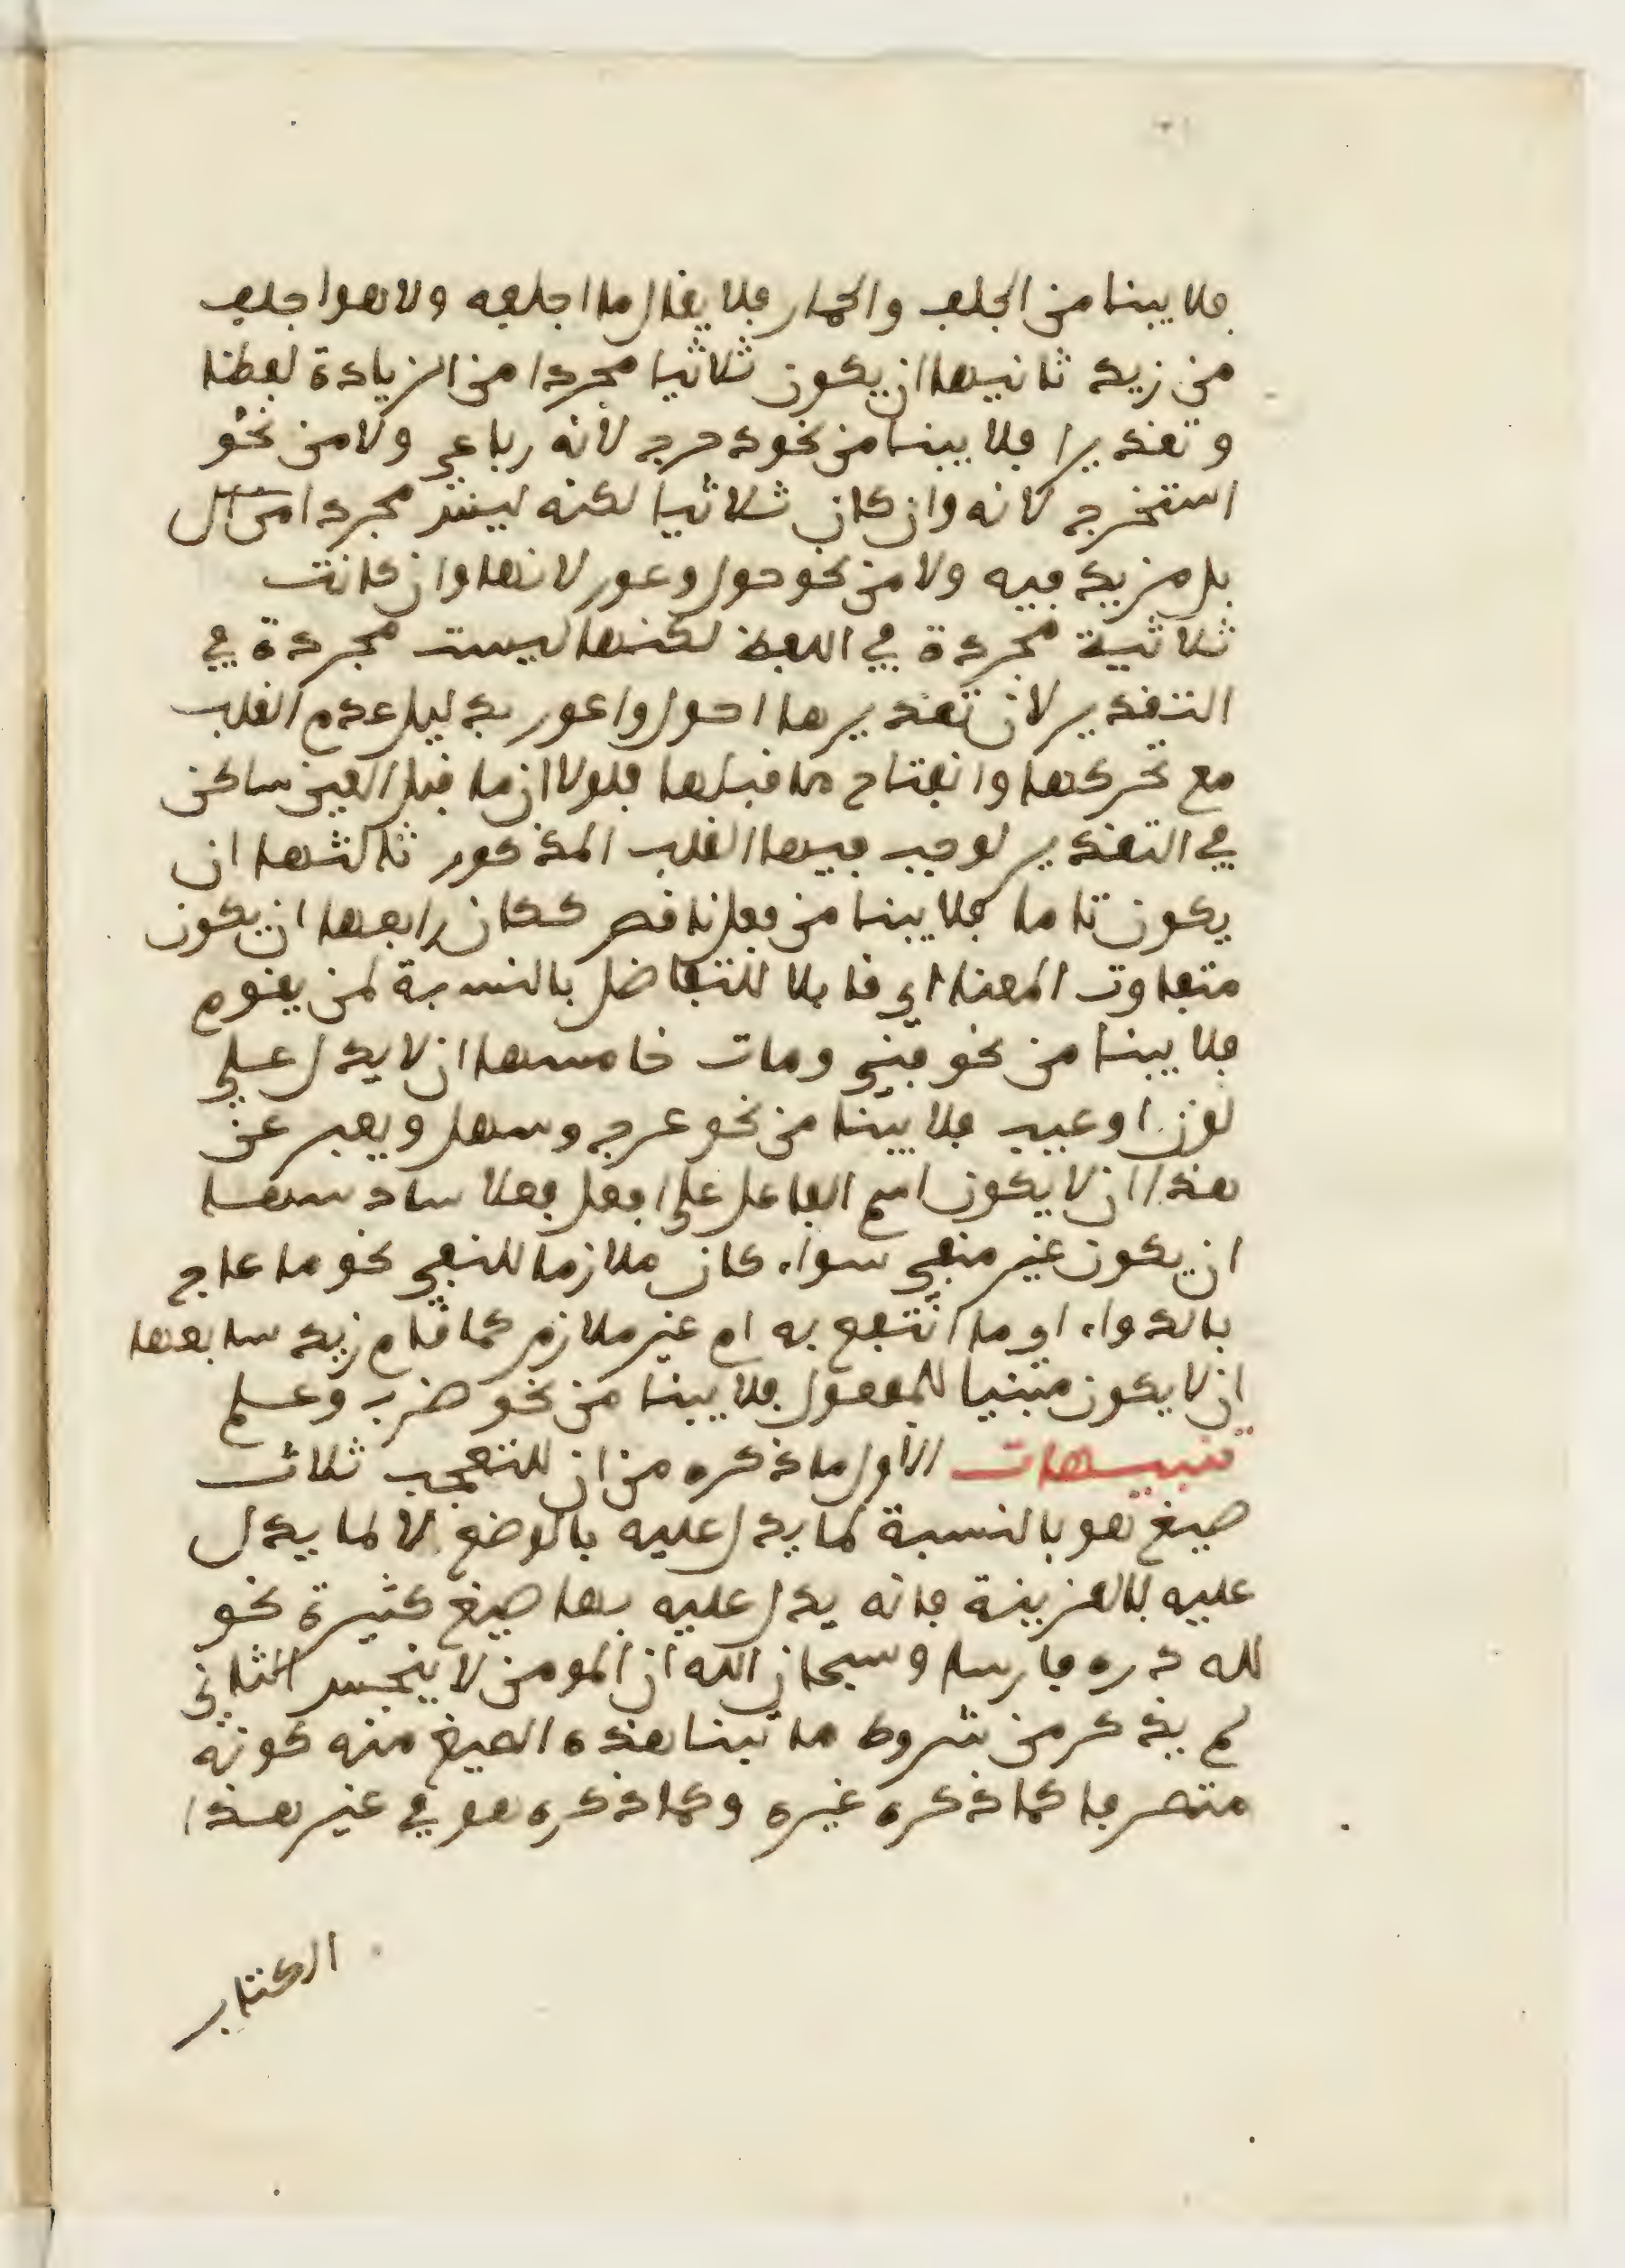 فلا يبنا من الجلف والحمار فلا يقال ما اجلفه ولا هو اجلف
من زيد ثانيها ان يكون ثلاثيا مجردا من الزيادة لفظا
وتقديرا فلا يبنا من نحو دحرج لانه رباعي ولا من نحو
استخرج لانه وان كان ثلاثيا لكنه ليس مجردا
بل مزيد فيه ولا من نحو حول وعور لانها وان كانت
ثلاثية مجردة في اللفظ لكنها ليست مجردة في
التقدير لان تقديرها احول واعور بدليل عدم القلب
مع تحركها وانفتاح ما قبلها فلولا ان ما قبل العين ساكن
في التقدير لوجب فيها القلب المذكور ثالثها ان
يكون تاما فلا يبنا من فعل ناقص ككان رابعها ان يكون
متفاوت المعنا اي قابلا للتفاضل بالنسبة لمن يقوم
فلا يبنا من نحو فني ومات خامسها ان لا يدل على
لون او عيب فلا يبنا من نحو عرج وسهل ويعبر عن
هذا ان لا يكون اسم الفاعل على افعل فعلا سادسها
ان يكون غير منفي سواء كان ملازما للنفي نحو ما عاج
بالدواء اي ما انتفع به ام غير ملازم كما قام زيد سابعها
ان لا يكون مبنيا للمفعول فلا يبنا من نحو ضرب وعلم
تنبيهات الاول ما ذكره من ان للتعجب ثلاث
صيغ هو بالنسبة لما يدل عليه بالوضع لا لما يدل
عليه بالقرينة فانه يدل عليه بها صيغ كثيرة نحو
لله دره فارسا وسبحان الله ان المومن لا ينجس الثاني
لم يذكر من شروط ما تبنا هذه الصيغ منه كونه
متصرفا كما ذكره غيره وكما ذكره هو في غير هذا
الكتاب